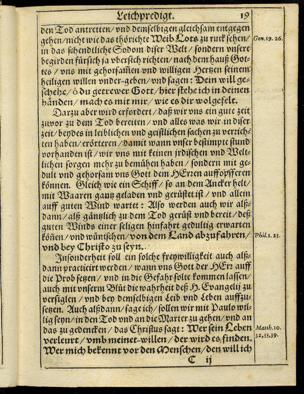 Leichpredigt. 19
den Tod antretten/ vnd demselbigen gleichsam entgegen
gehen/ nicht wie das thörichte Weib Lots zu ruck sehen/
in das schendtliche Sodom diser Welt/ sondern vnsere
begirden fürsich ja übersich richten/ nach dem hauß Got-
tes/ vns mit gehorsamen vnd willigen Hertzen seinem
heiligen willen vnder-geben/ vnd sagen: Dein will ge-
schehe/ ô du getrewer Gott/ hier stehe ich in deinen
händen/ mach es mit mir/ wie es dir wolgefelt.
Gen. 19. 26.
Darzu aber wird erfordert/ daß wir vns ein gut zeit
zuvor zu dem Tod bereiten/ vnd alles was wir in diser
zeit/ beydes in leiblichen vnd geistlichen sachen zu verrich-
ten haben/ erörteren/ damit wann vnser bestimpte stund
vorhanden ist/ wir vns mit keinen jrdischen vnd Welt-
lichen sorgen mehr zu bemühen haben/ sondern mit ge-
dult vnd gehorsam vns Gott dem HErren auffopfferen
können. Gleich wie ein Schiff/ so an dem Ancker helt/
mit Waaren gantz geladen vnd gerüstet ist/ vnd allein
auff guten Wind wartet: Also werden auch wir alß-
dann/ alß gäntzlich zu dem Tod gerüst vnd bereit/ deß
guten Winds einer seligen hinfahrt gedultig erwarten
können/ vnd wünschen/ von dem Land abzufahren/
vnd bey Christo zu seyn.
Phil. 1. 23.
Insonderheit soll ein solche freywilligkeit auch alß-
dann practiciert werden/ wann vns Gott der HErr auff
die Proben setzen/ vnd in die Gefahr solte kommen lassen/
auch mit vnserm Blüt die wahrheit deß H. Evangelij zu
versiglen/ vnd bey demselbigen Leib vnd Leben auffzu-
setzen. Auch alßdann/ sage ich/ sollen wir mit Paulo wil-
lig seyn/ in den Tod vnd an die Marter zu gehen/ vnd an
das zu gedencken/ das Christus sagt: Wer sein Leben
verleurt/ vmb meinet-willen/ der wird es finden.
Wer mich bekennt vor den Menschen/ den will ich
Matth. 10.
32, 33, 39.
C ij